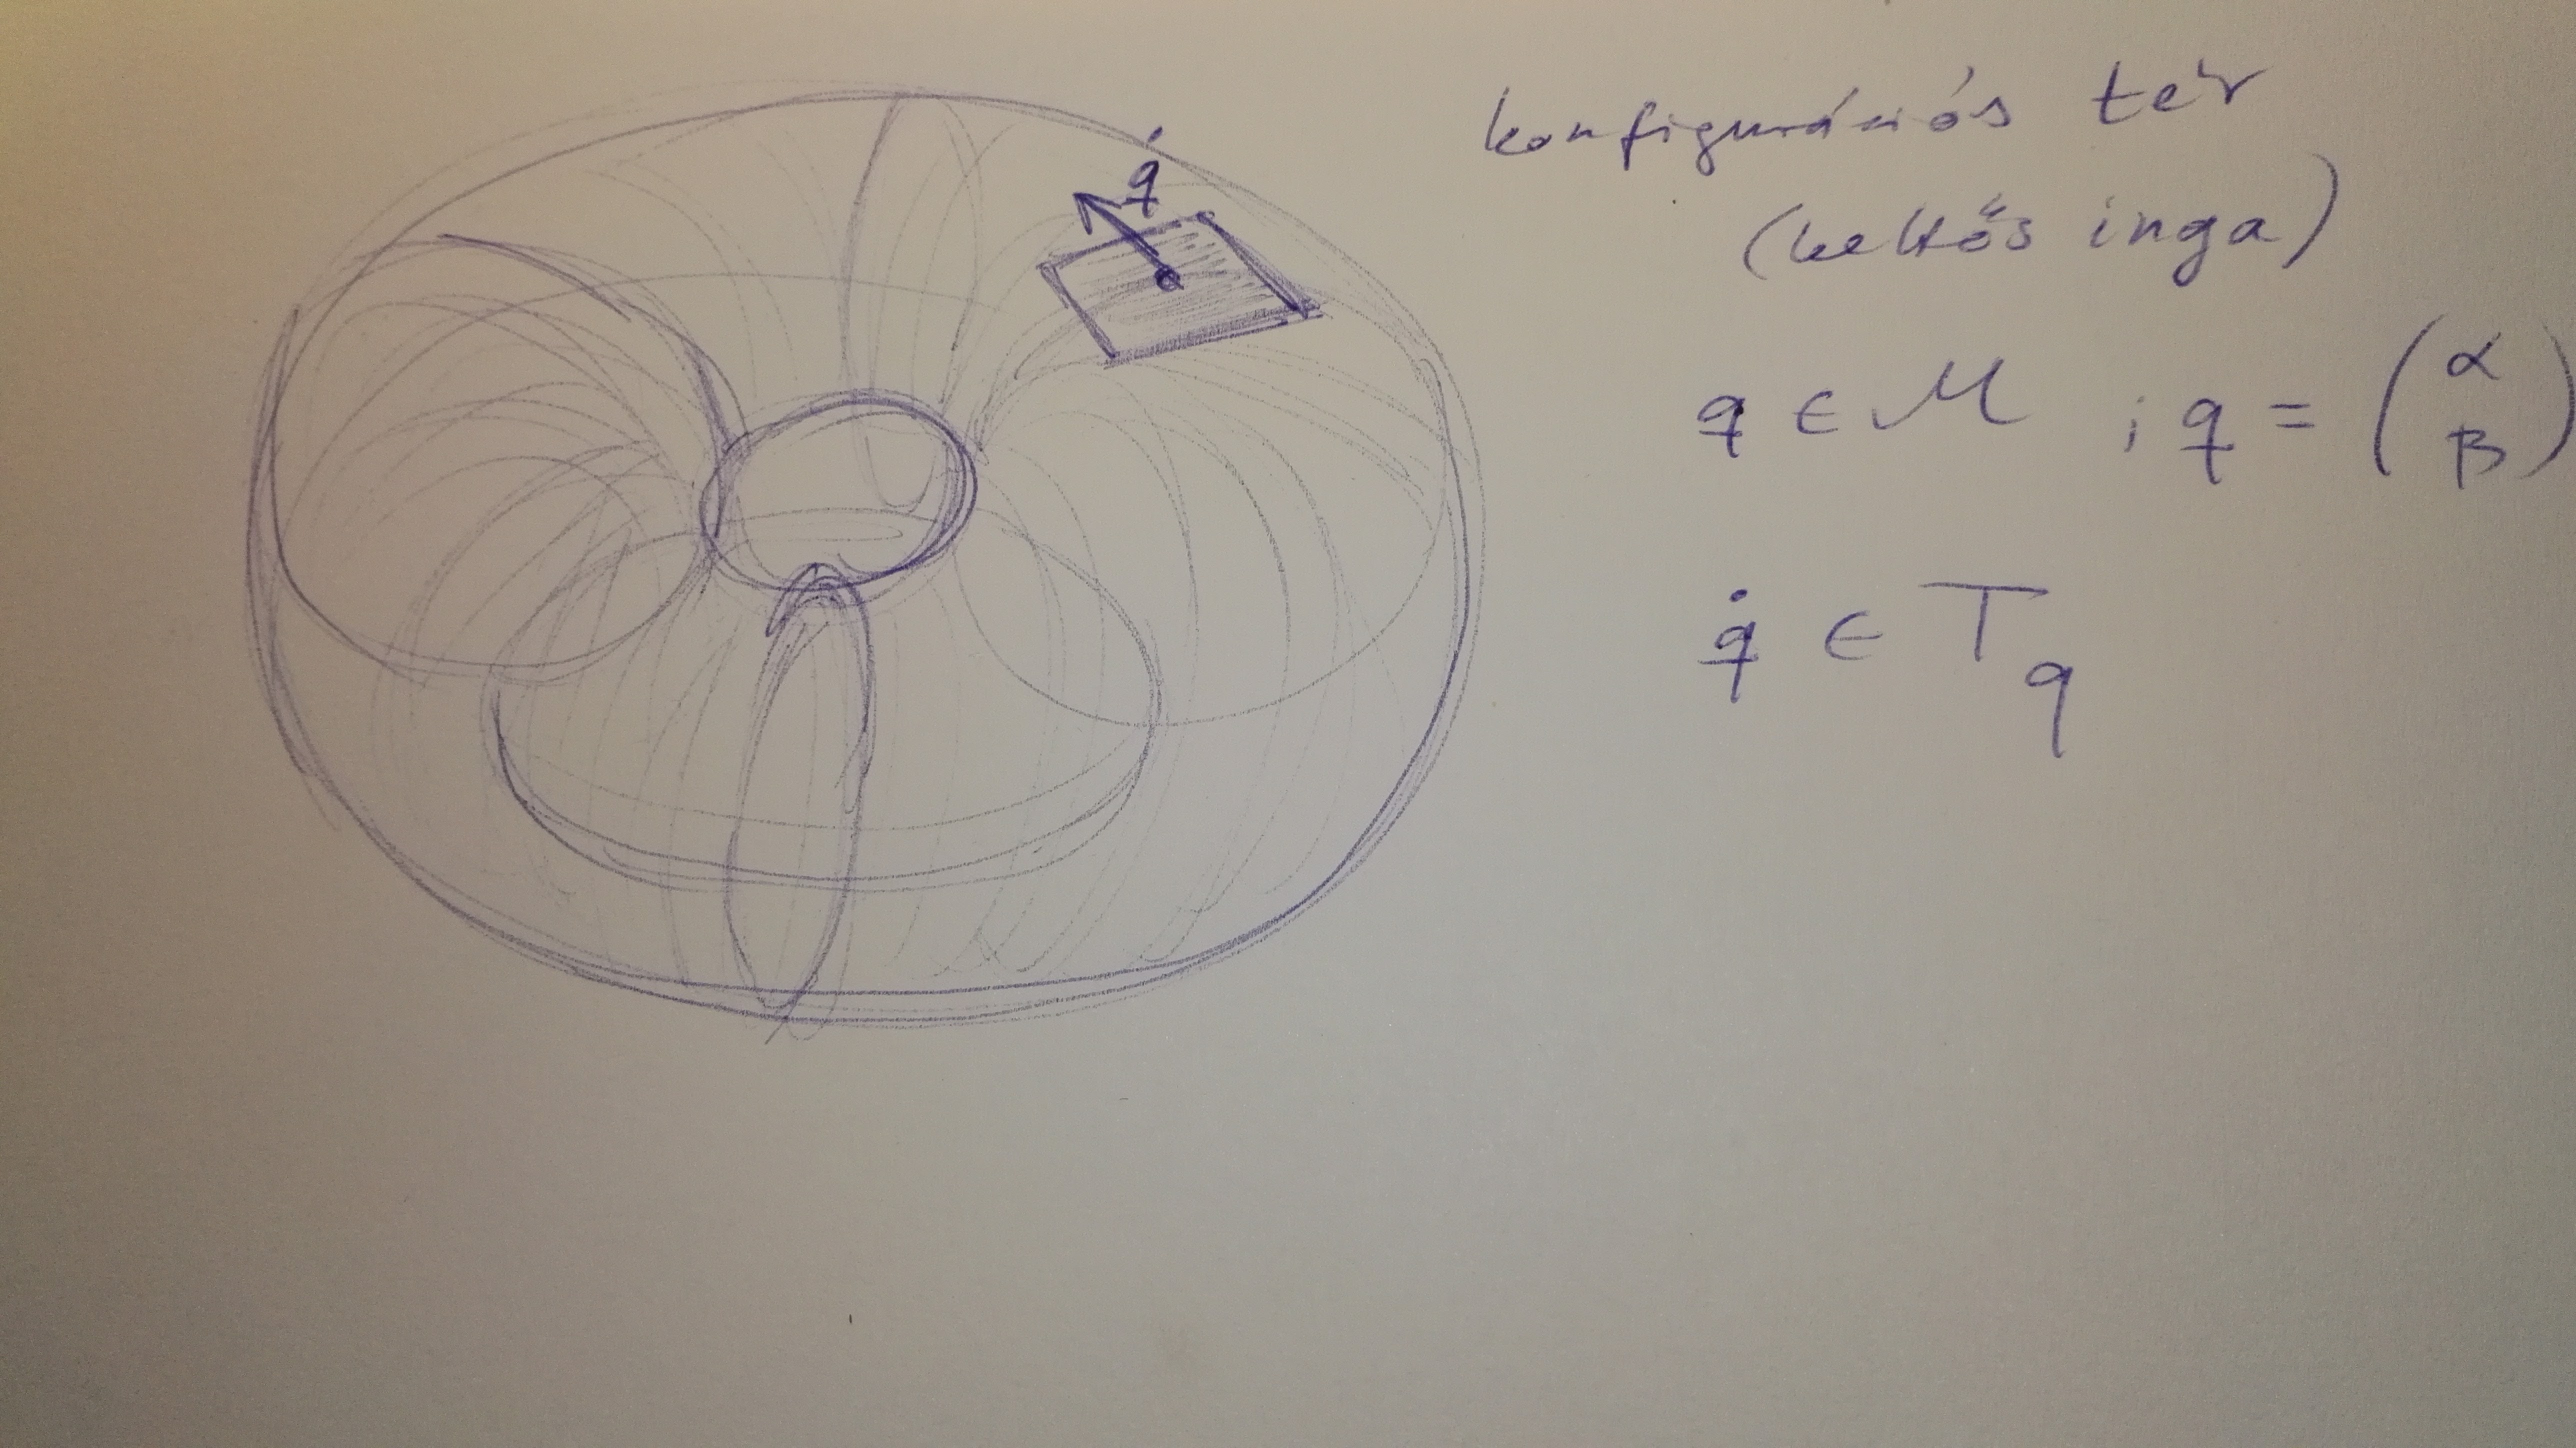 q̇
konfigurációs tér
(kettős inga)
q ∈ M ; q = (α β)
q̇ ∈ T_q